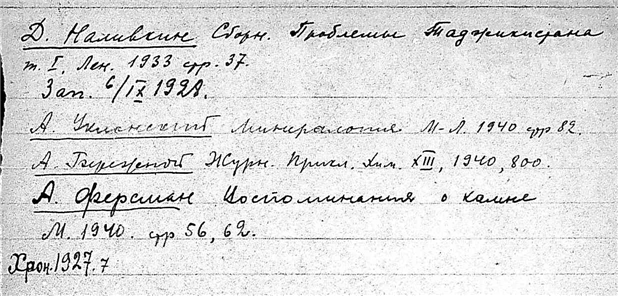 Д. Наливкин Сборн. Проблемы Таджикистана
т. I, Лен. 1933 стр. 37.
Зап. 6/IX 1928.
А. Уклонский Минералогия М-Л. 1940 стр 82.
А. Бережной Журн. Прикл. Хим. XIII, 1940, 800.
А. Ферсман Воспоминания о камне
М. 1940. стр 56, 62.
Хрон. 1927. 7